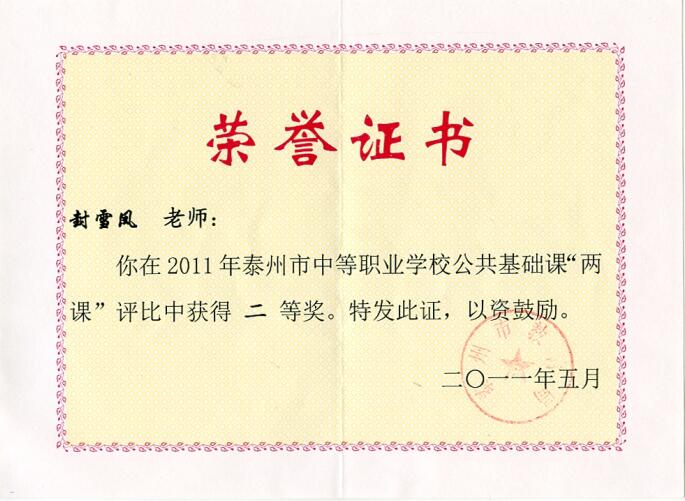 荣誉证书
封雪凤 老师：
你在2011年泰州市中等职业学校公共基础课“两
课”评比中获得 二 等奖。特发此证，以资鼓励。
二〇一一年五月